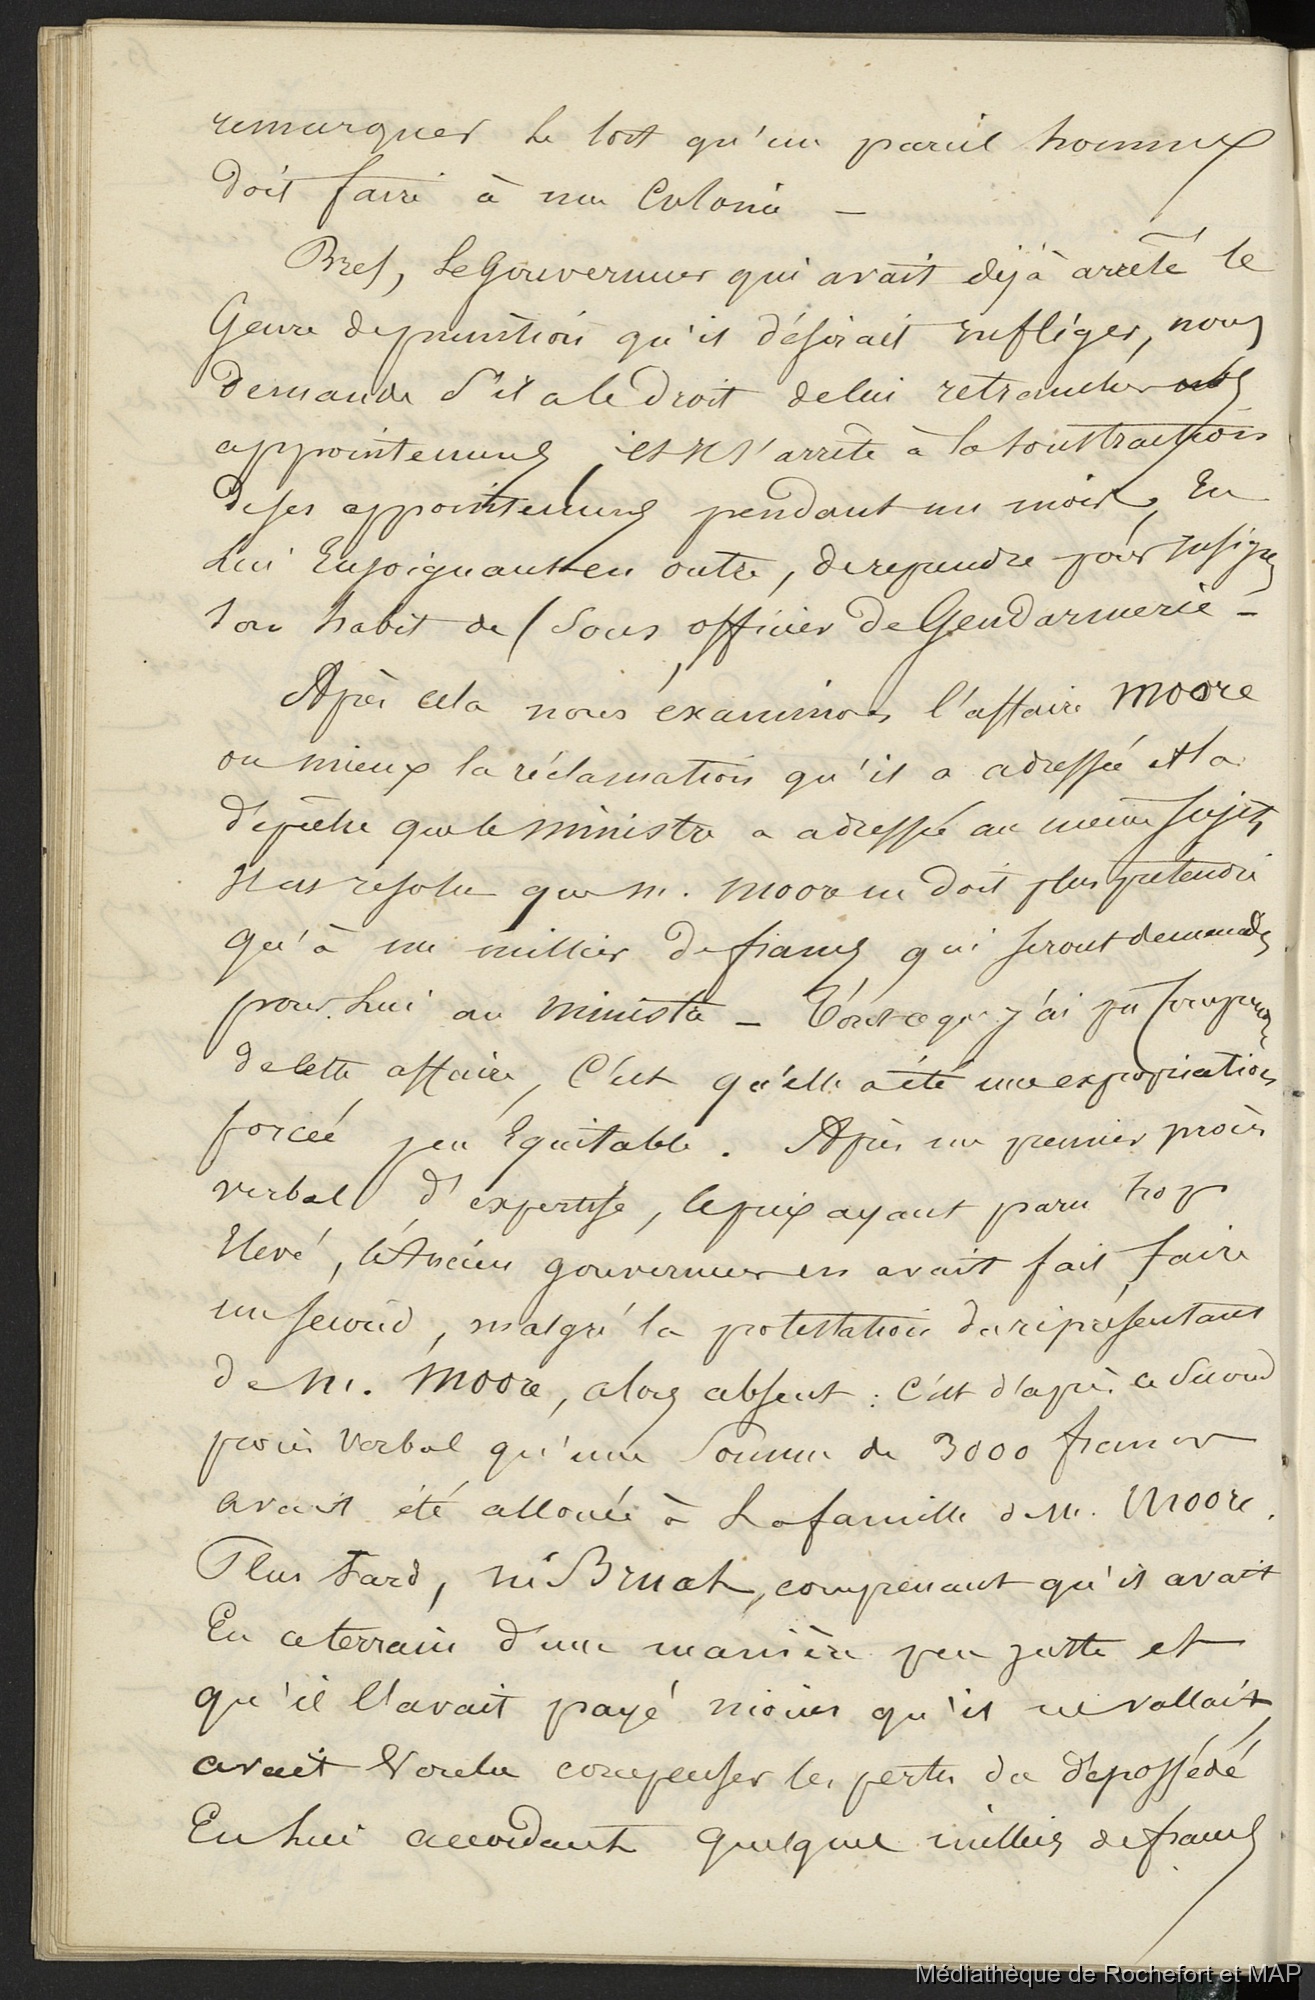 remarquer le tort qu'un pareil homme
doit faire à une Colonie –
Bref, le Gouverneur qui avait déjà arrêté le
Genre de punition qu'il désirait infliger, nous
demande s'il a le droit de lui retrancher
appointements, et s'arrête à la soustraction
de ses appointements pendant un mois, En
lui Enjoignant en outre, de reprendre pour
son habit de Sous officier de Gendarmerie –
Après cela nous examinons l'affaire Moore
ou mieux la réclamation qu'il a adressée et la
dépêche que le ministre a adressée au même sujet,
Il est résolu que M. Moore ne doit plus prétendre
qu'à un millier de francs qui seront demandés
pour Lui au ministre – Tout ce que j'ai pu comprendre
de cette affaire, C'est qu'elle a été une expropriation
forcée peu Equitable. Après un premier procès
verbal d'expertise, le prix ayant paru trop
Elevé, l'Ancien gouverneur en avait fait faire
un second, malgré la protestation du représentant
de M. Moore, alors absent : C'est d'après ce Second
procès Verbal qu'une Somme de 3000 francs
avait été allouée à La famille de M. Moore.
Plus tard, M. Bruat, comprenant qu'il avait
Eu ce terrain d'une manière peu juste et
qu'il l'avait payé moins qu'il ne vallait,
avait Voulu compenser les pertes du dépossédé
En Lui accordant quelques milliers de francs
Médiathèque de Rochefort et MAP